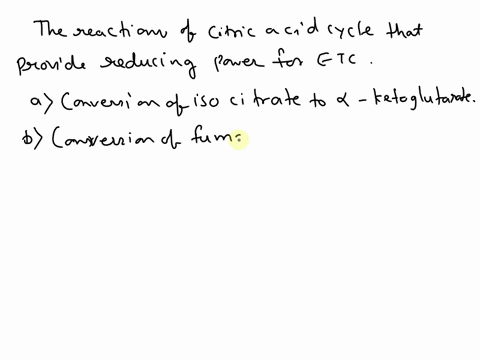 The reactions of citric acid cycle that
provide reducing power for ETC.
a) Conversion of iso citrate to α-ketoglutarate.
b) Conversion of fum